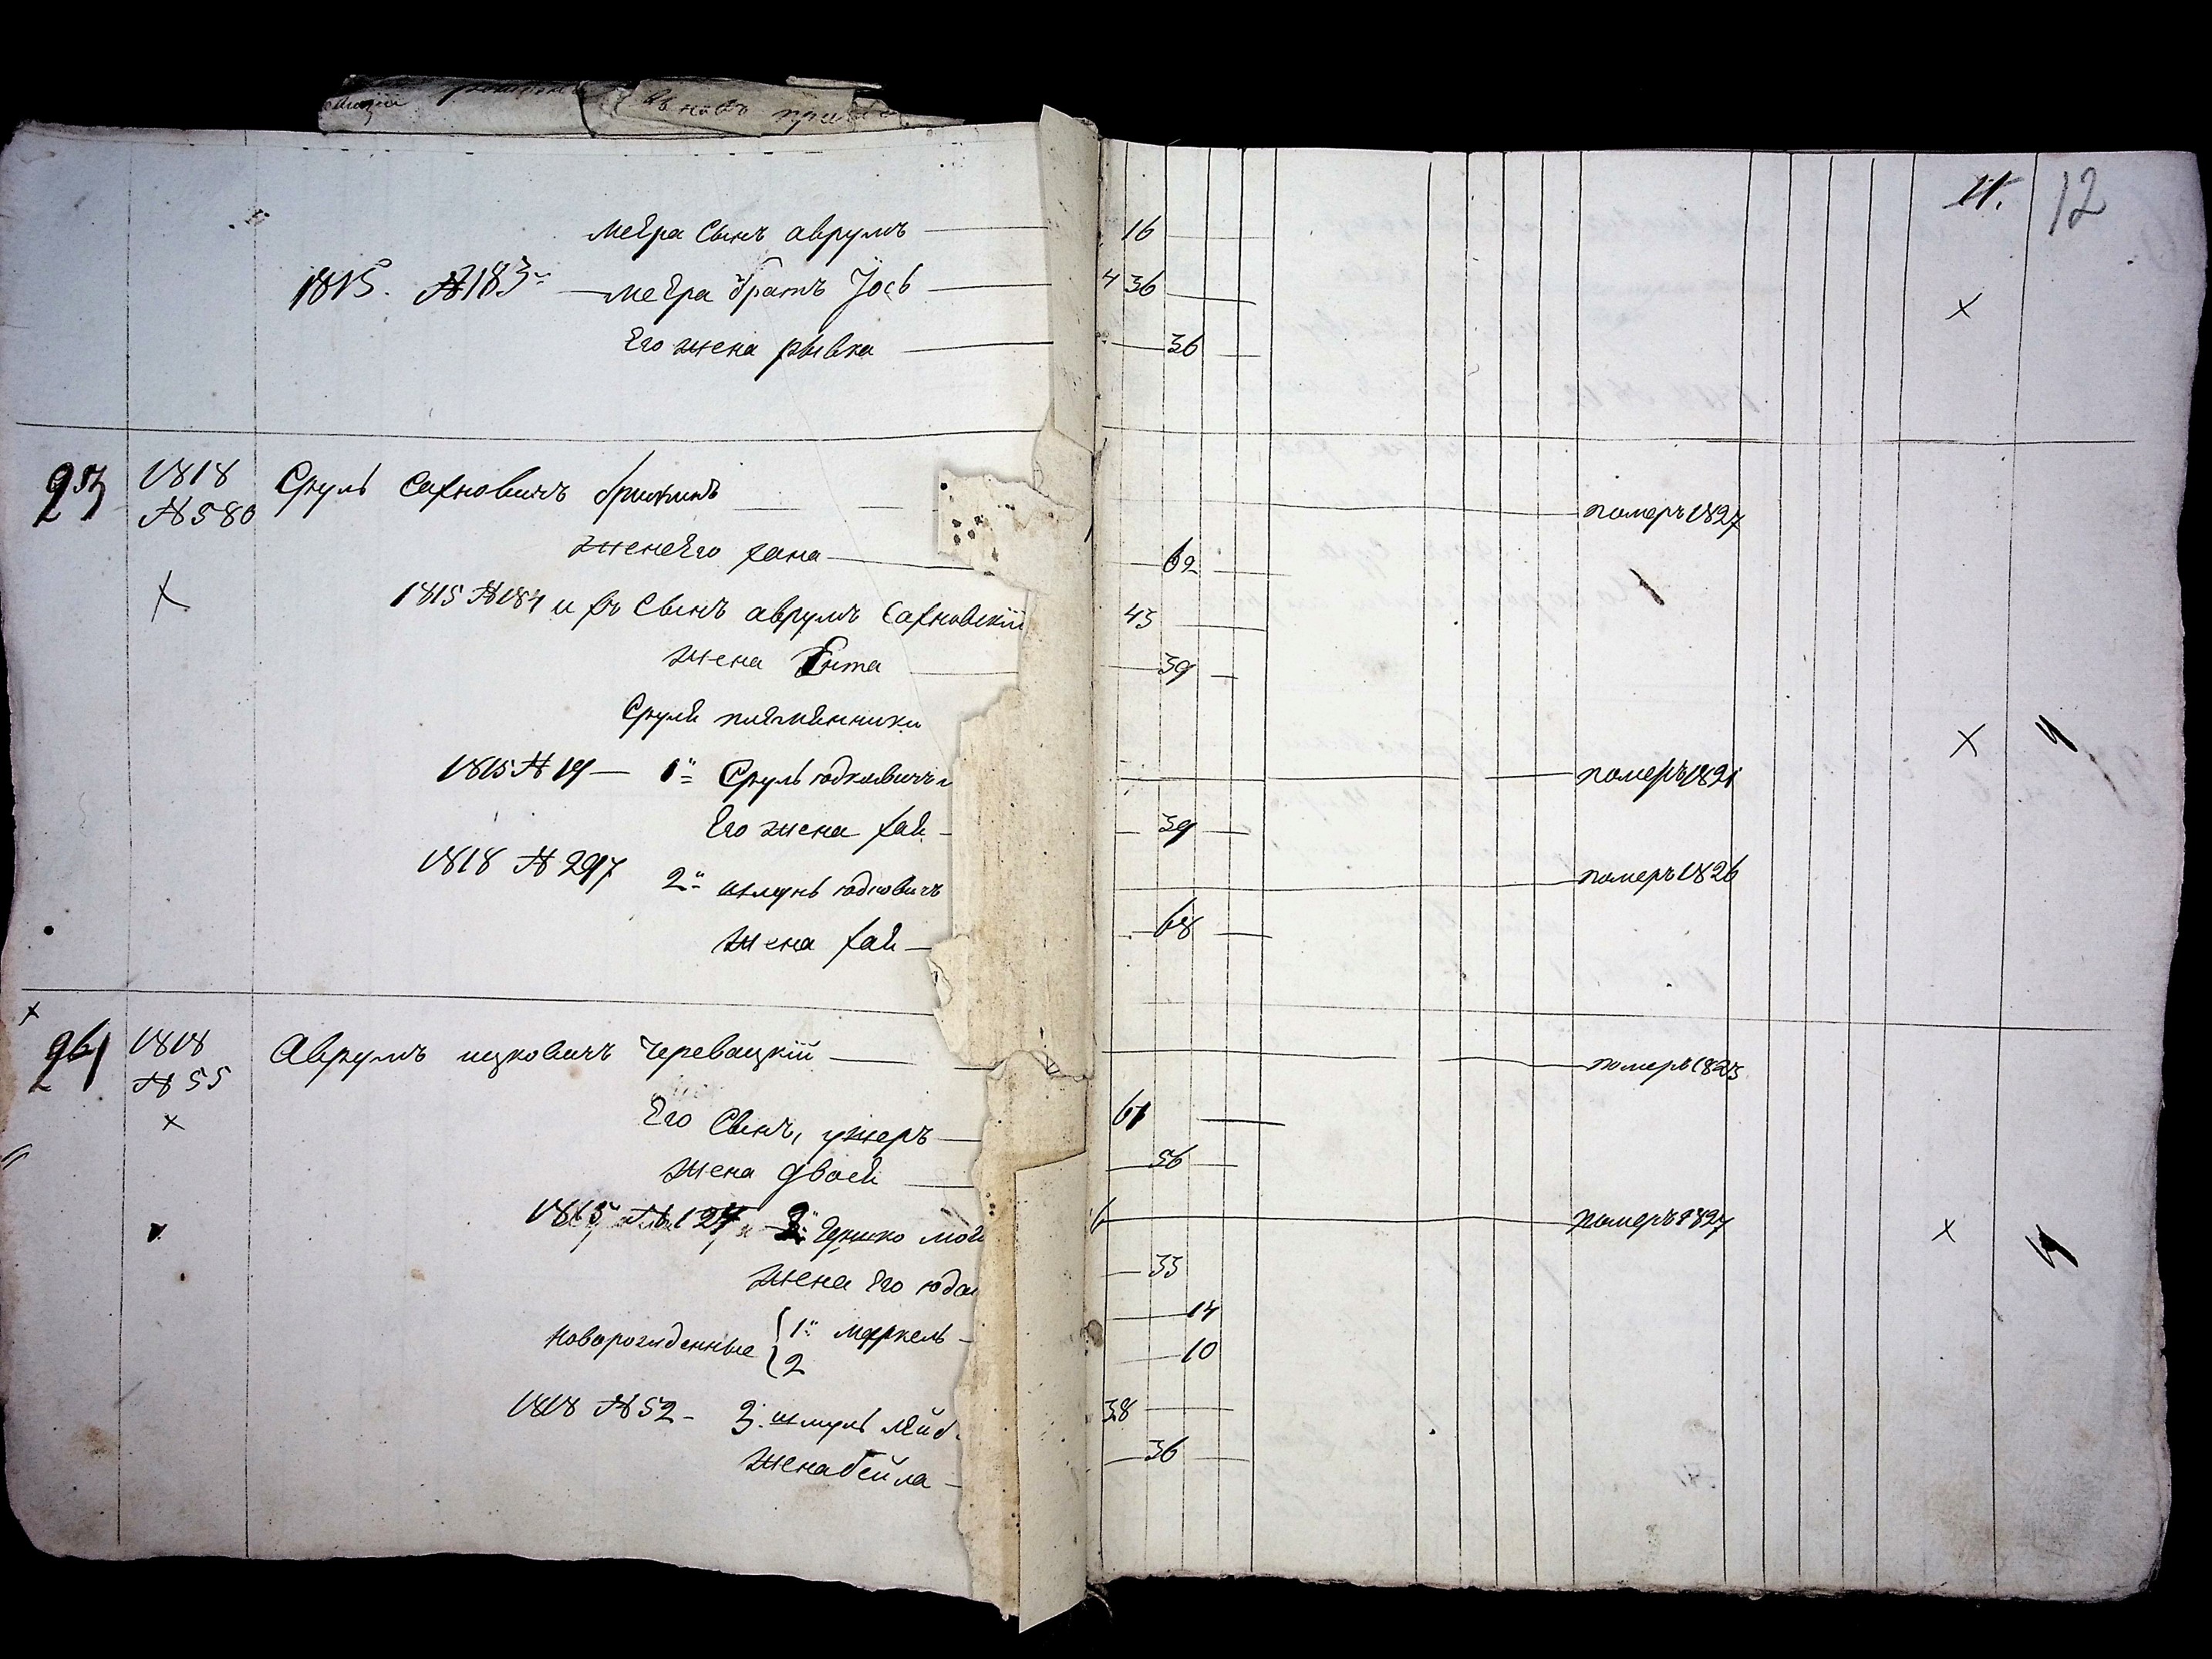 вновь
11. 12
Меера сынъ аврумъ 16
1815. №183 Меера братъ Іось 36
Его жена рывка 36
25 1818 Сруль Сахновичъ померъ 1827
№580
жена Его хана 62
1815 №184 и ихъ Сынъ аврумъ Сахновскій 43
жена Ента 39
Сруля племянники
1815 № 19 1 Сруль юдковичъ померъ 1821
Его жена хая 39
1818 № 297 2 шмунь юдковичъ померъ 1826
жена хая 68
26 1818 Аврумъ ицковичъ Череващкій померъ 1823
№ 55
Его Сынъ, ушеръ 61
жена двоея 56
1815 № 127 2 Гершко мош померъ 1827
жена Его юда 33
новорожденные 1 маркель 14
2 10
1818 № 52 3 шмуль лейб 38
жена бейла 36